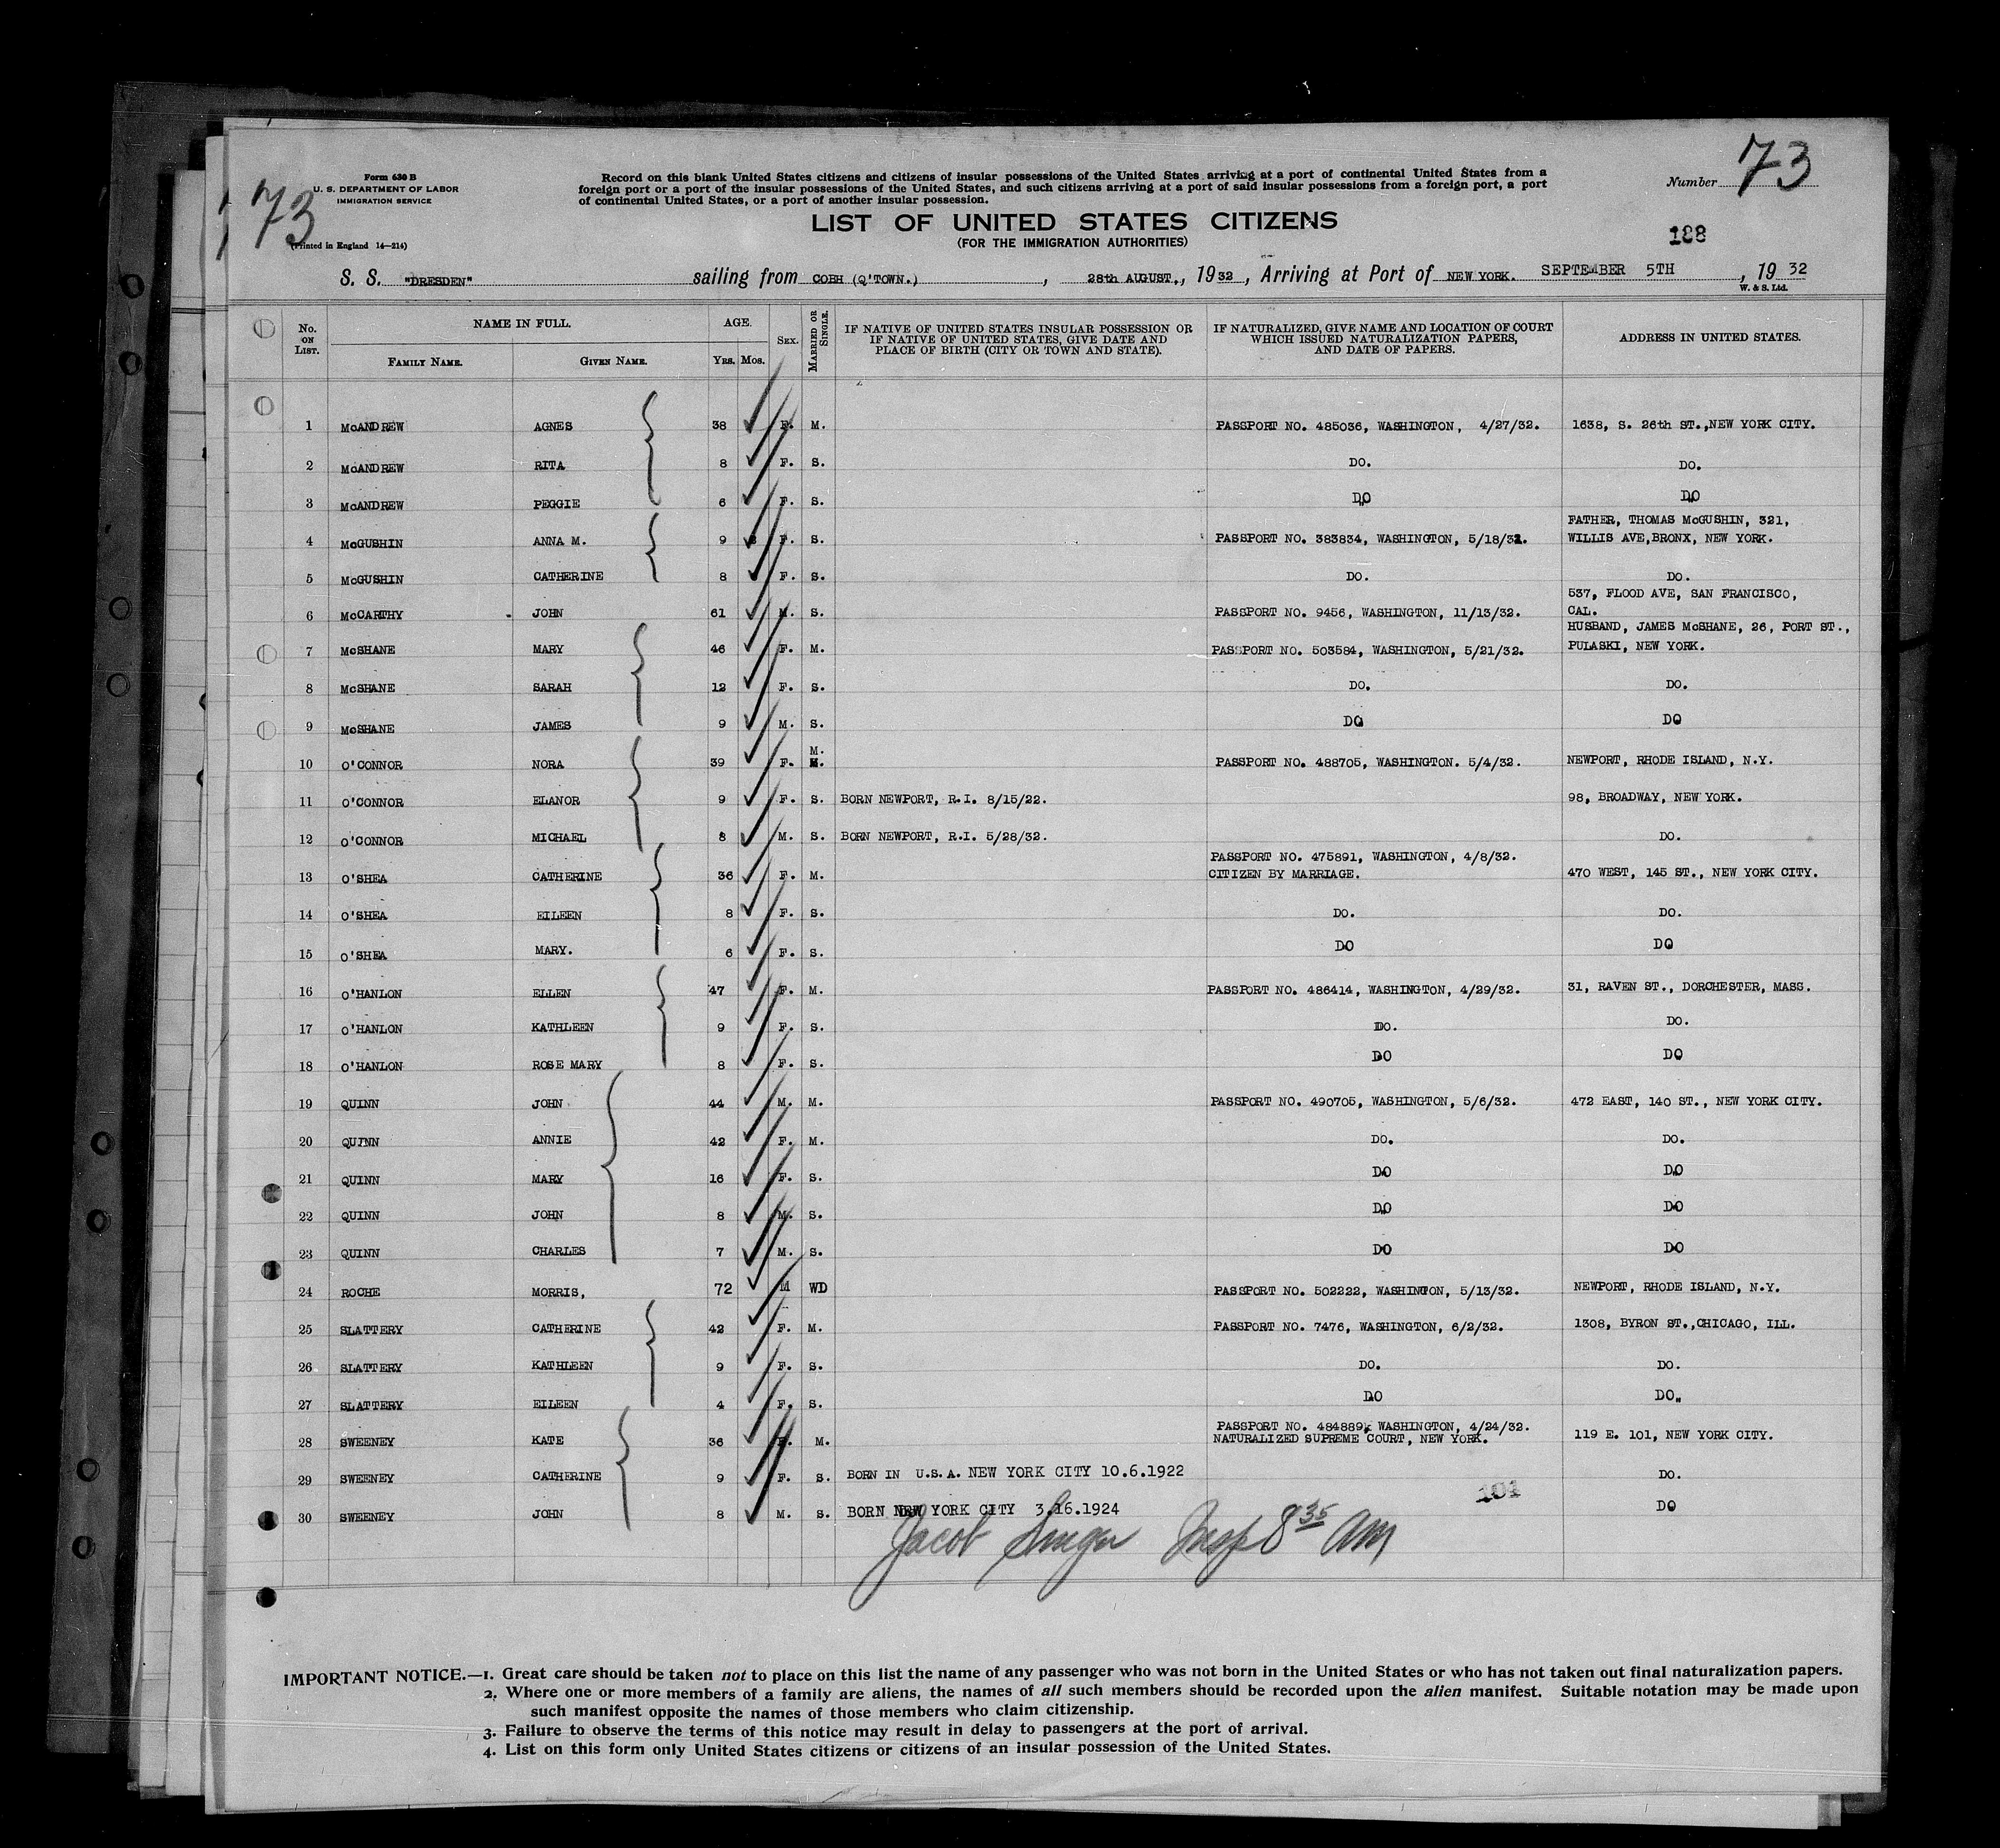 73
Form 630 B
U. S. DEPARTMENT OF LABOR
IMMIGRATION SERVICE
73
(Printed in England 14—214)
Record on this blank United States citizens and citizens of insular possessions of the United States arriving at a port of continental United States from a
foreign port or a port of the insular possessions of the United States, and such citizens arriving at a port of said insular possessions from a foreign port, a port
of continental United States, or a port of another insular possession.
Number
LIST OF UNITED STATES CITIZENS
(FOR THE IMMIGRATION AUTHORITIES)
188
S. S. "DRESDEN" sailing from COBH (Q'TOWN.) , 28th AUGUST., 1932, Arriving at Port of NEW YORK. SEPTEMBER 5TH , 19 32
W. & S. Ltd.
No. ON LIST. NAME IN FULL. FAMILY NAME. GIVEN NAME. AGE. YRS. MOS. SEX. MARRIED OR SINGLE. IF NATIVE OF UNITED STATES INSULAR POSSESSION OR IF NATIVE OF UNITED STATES, GIVE DATE AND PLACE OF BIRTH (CITY OR TOWN AND STATE). IF NATURALIZED, GIVE NAME AND LOCATION OF COURT WHICH ISSUED NATURALIZATION PAPERS, AND DATE OF PAPERS. ADDRESS IN UNITED STATES.
1 McANDREW AGNES 38 F. M. PASSPORT NO. 485036, WASHINGTON, 4/27/32. 1638, S. 26th ST.,NEW YORK CITY.
2 McANDREW RITA 8 F. S. DO. DO.
3 McANDREW PEGGIE 6 F. S. DO DO
FATHER, THOMAS McGUSHIN, 321,
4 McGUSHIN ANNA M. 9 F. S. PASSPORT NO. 383834, WASHINGTON, 5/18/31. WILLIS AVE,BRONX, NEW YORK.
5 McGUSHIN CATHERINE 8 F. S. DO. DO.
537, FLOOD AVE, SAN FRANCISCO,
6 McCARTHY JOHN 61 M. S. PASSPORT NO. 9456, WASHINGTON, 11/13/32. CAL.
HUSBAND, JAMES McSHANE, 26, PORT ST.,
7 McSHANE MARY 46 F. M. PASSPORT NO. 503584, WASHINGTON, 5/21/32. PULASKI, NEW YORK.
8 McSHANE SARAH 12 F. S. DO. DO.
9 McSHANE JAMES 9 M. S. DO DO
M.
10 O'CONNOR NORA 39 F. M. PASSPORT NO. 488705, WASHINGTON. 5/4/32. NEWPORT, RHODE ISLAND, N.Y.
11 O'CONNOR ELANOR 9 F. S. BORN NEWPORT, R.I. 8/15/22. 98, BROADWAY, NEW YORK.
12 O'CONNOR MICHAEL 8 M. S. BORN NEWPORT, R.I. 5/28/32. DO.
PASSPORT NO. 475891, WASHINGTON, 4/8/32.
13 O'SHEA CATHERINE 36 F. M. CITIZEN BY MARRIAGE. 470 WEST, 145 ST., NEW YORK CITY.
14 O'SHEA EILEEN 8 F. S. DO. DO.
15 O'SHEA MARY. 6 F. S. DO DO
16 O'HANLON ELLEN 47 F. M. PASSPORT NO. 486414, WASHINGTON, 4/29/32. 31, RAVEN ST., DORCHESTER, MASS.
17 O'HANLON KATHLEEN 9 F. S. DO. DO.
18 O'HANLON ROSE MARY 8 F. S. DO DO
19 QUINN JOHN 44 M. M. PASSPORT NO. 490705, WASHINGTON, 5/6/32. 472 EAST, 140 ST., NEW YORK CITY.
20 QUINN ANNIE 42 F. M. DO. DO.
21 QUINN MARY 16 F. S. DO DO
22 QUINN JOHN 8 M. S. DO DO
23 QUINN CHARLES 7 M. S. DO DO
24 ROCHE MORRIS, 72 M WD PASSPORT NO. 502222, WASHINTON, 5/13/32. NEWPORT, RHODE ISLAND, N.Y.
25 SLATTERY CATHERINE 42 F. M. PASSPORT NO. 7476, WASHINGTON, 6/2/32. 1308, BYRON ST.,CHICAGO, ILL.
26 SLATTERY KATHLEEN 9 F. S. DO. DO.
27 SLATTERY EILEEN 4 F. S. DO DO.
PASSPORT NO. 484889, WASHINGTON, 4/24/32.
28 SWEENEY KATE 36 F. M. NATURALIZED SUPREME COURT, NEW YORK. 119 E. 101, NEW YORK CITY.
29 SWEENEY CATHERINE 9 F. S. BORN IN U.S.A. NEW YORK CITY 10.6.1922 DO.
30 SWEENEY JOHN 8 M. S. BORN NEW YORK CITY 3.16.1924 101 DO
Jacob Singer Insp 8 35 AM
IMPORTANT NOTICE.—1. Great care should be taken not to place on this list the name of any passenger who was not born in the United States or who has not taken out final naturalization papers.
2. Where one or more members of a family are aliens, the names of all such members should be recorded upon the alien manifest. Suitable notation may be made upon
such manifest opposite the names of those members who claim citizenship.
3. Failure to observe the terms of this notice may result in delay to passengers at the port of arrival.
4. List on this form only United States citizens or citizens of an insular possession of the United States.